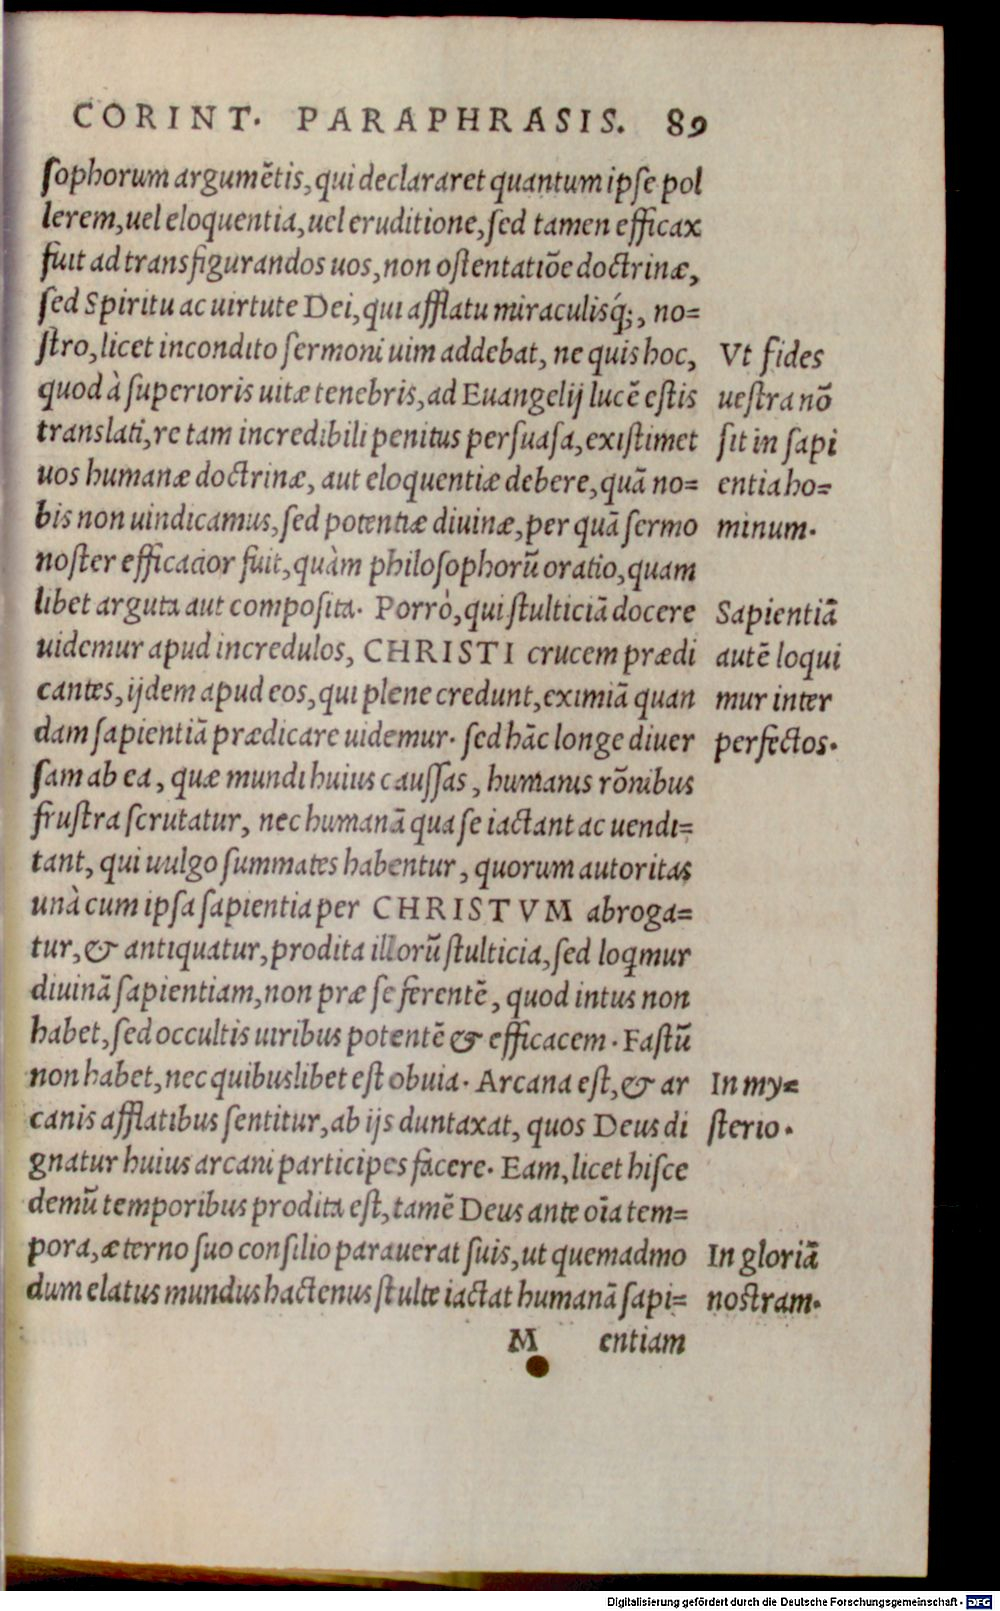 CORINT. PARAPHRASIS. 89
sophorum argumẽtis, qui declararet quantum ipse pol
lerem, uel eloquentia, uel eruditione, sed tamen efficax
fuit ad transfigurandos uos, non ostentatiõe doctrinæ,
sed Spiritu ac uirtute Dei, qui afflatu miraculisq́;, no=
stro, licet incondito sermoni uim addebat, ne quis hoc,
quod à superioris uitæ tenebris, ad Euangelij lucẽ estis
translati, re tam incredibili penitus persuasa, existimet
uos humanæ doctrinæ, aut eloquentiæ debere, quã no=
bis non uindicamus, sed potentiæ diuinæ, per quã sermo
noster efficacior fuit, quàm philosophorũ oratio, quam
libet arguta aut composita. Porrò, qui stulticiã docere
uidemur apud incredulos, CHRISTI crucem prædi
cantes, ijdem apud eos, qui plene credunt, eximiã quan
dam sapientiã prædicare uidemur. sed hãc longe diuer
sam ab ea, quæ mundi huius caussas, humanis rõnibus
frustra scrutatur, nec humanã qua se iactant ac uendi=
tant, qui uulgo summates habentur, quorum autoritas
unà cum ipsa sapientia per CHRISTVM abroga=
tur, & antiquatur, prodita illorũ stulticia, sed loqmur
diuinã sapientiam, non præ se ferentẽ, quod intus non
habet, sed occultis uiribus potentẽ & efficacem. Fastũ
non habet, nec quibuslibet est obuia. Arcana est, & ar
canis afflatibus sentitur, ab ijs duntaxat, quos Deus di
gnatur huius arcani participes facere. Eam, licet hisce
demũ temporibus prodita est, tamẽ Deus ante oĩa tem=
pora, æterno suo consilio parauerat suis, ut quemadmo
dum elatus mundus hactenus stulte iactat humanã sapi=
M entiam
Vt fides
uestra nõ
sit in sapi
entia ho=
minum.
Sapientiã
autẽ loqui
mur inter
perfectos.
In my=
sterio.
In gloriã
nostram.
Digitalisierung gefördert durch die Deutsche Forschungsgemeinschaft - DFG